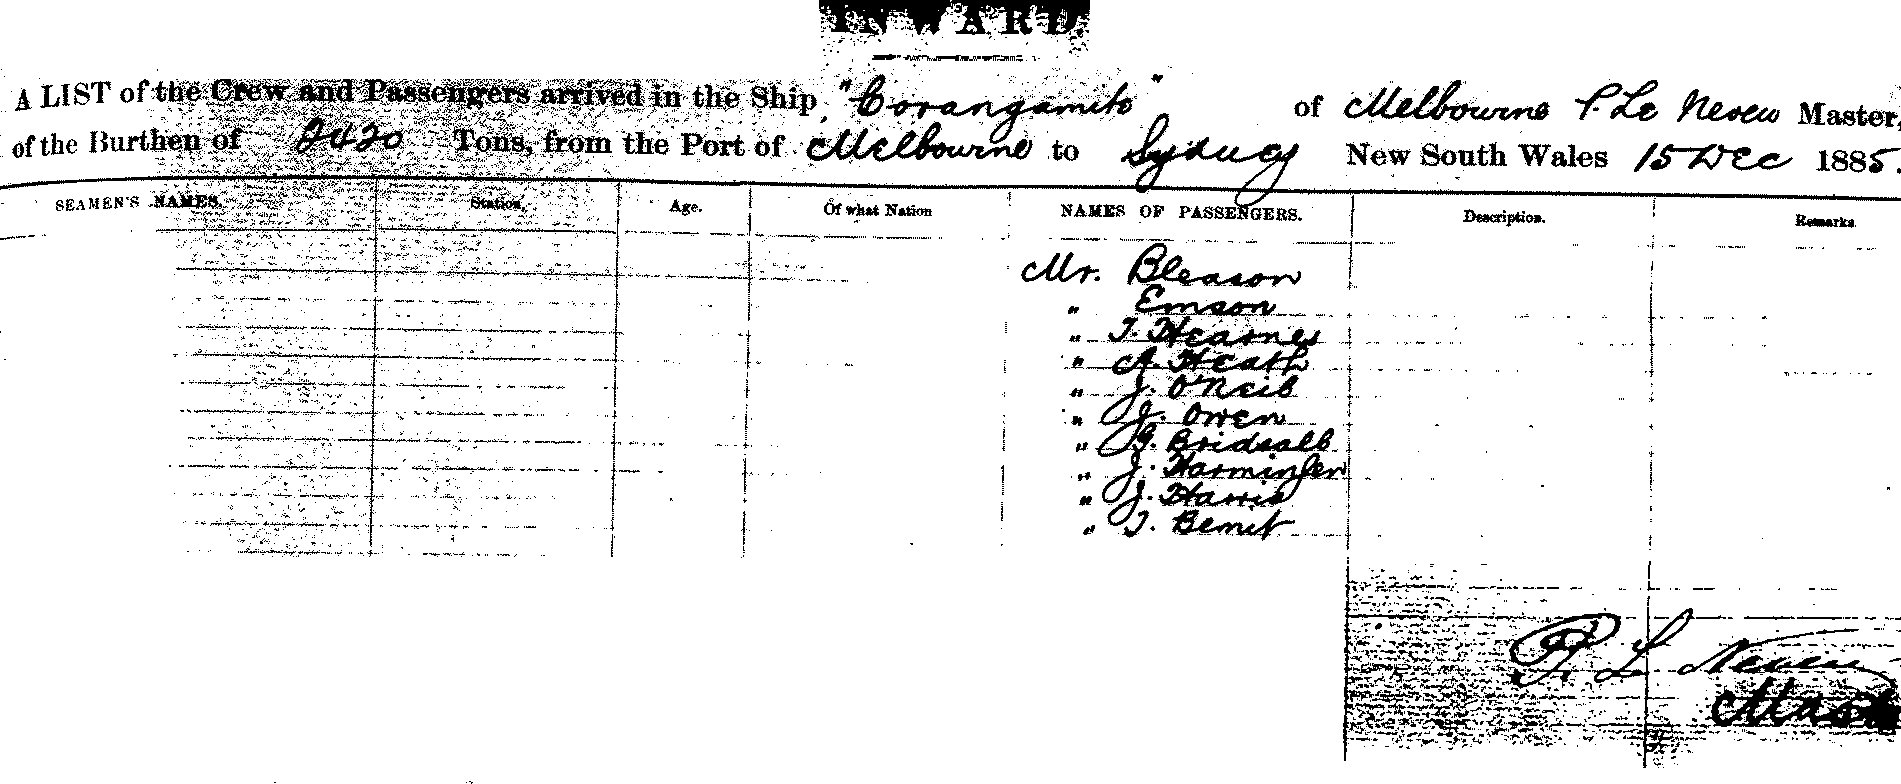 INWARD.
A LIST of the Crew and Passengers arrived in the Ship, "Corangamite" of Melbourne P. Le Neveu Master,
of the Burthen of 2420 Tons, from the Port of Melbourne to Sydney New South Wales 15 Dec 1885.
SEAMEN'S NAMES. Station. Age. Of what Nation NAMES OF PASSENGERS. Description. Remarks
Mr. Gleason
" Emson
" T. Hearnes
" A. Heath
" J. O'Neil
" J. Owen
" G. Bridsall
" J.
" J. Harris
" T.
P. Le Neveu
Mast